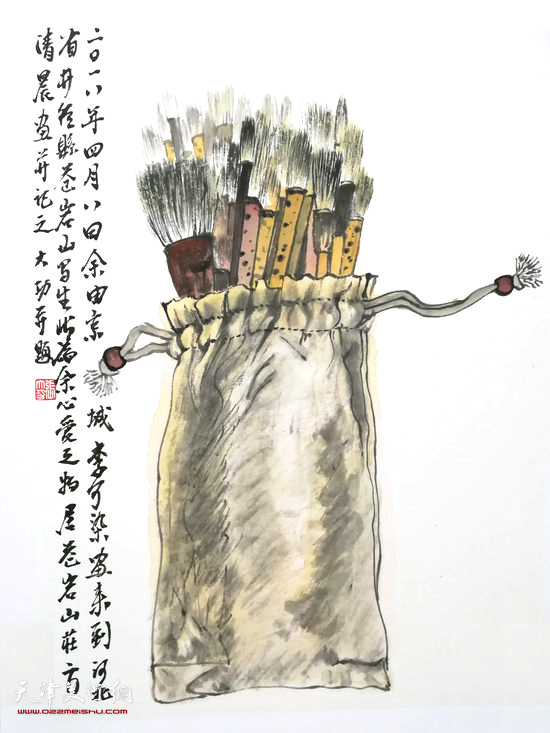 二〇一八年四月八日余由京城李可染画来到河北
省井陉縣苍岩山写生此為余心爱之物居苍岩山莊
清晨画并记之 大功并题
天津美术网
www.022meishu.com